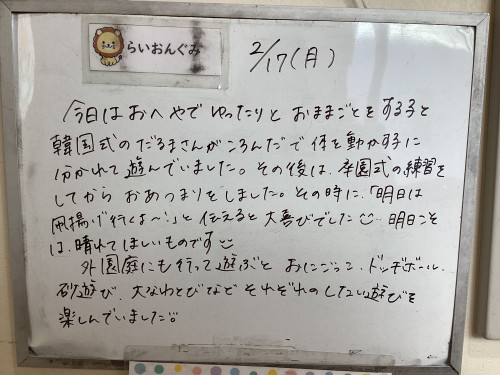 らいおんぐみ
2/17(月)
今日はおへやでゆったりとおままごとをする子と
韓国式のだるまさんがころんだで体を動かす子に
分かれて遊んでいました。その後は、卒園式の練習を
してからおあつまりをしました。その時に、「明日は
凧揚げ行くよ〜!」と伝えると大喜びでした☺ 明日こそ
は、晴れてほしいものです☺
外園庭にも行って遊ぶと おにごっこ、ドッヂボール、
砂遊び、大なわとびなど それぞれのしたい遊びを
楽しんでいました。